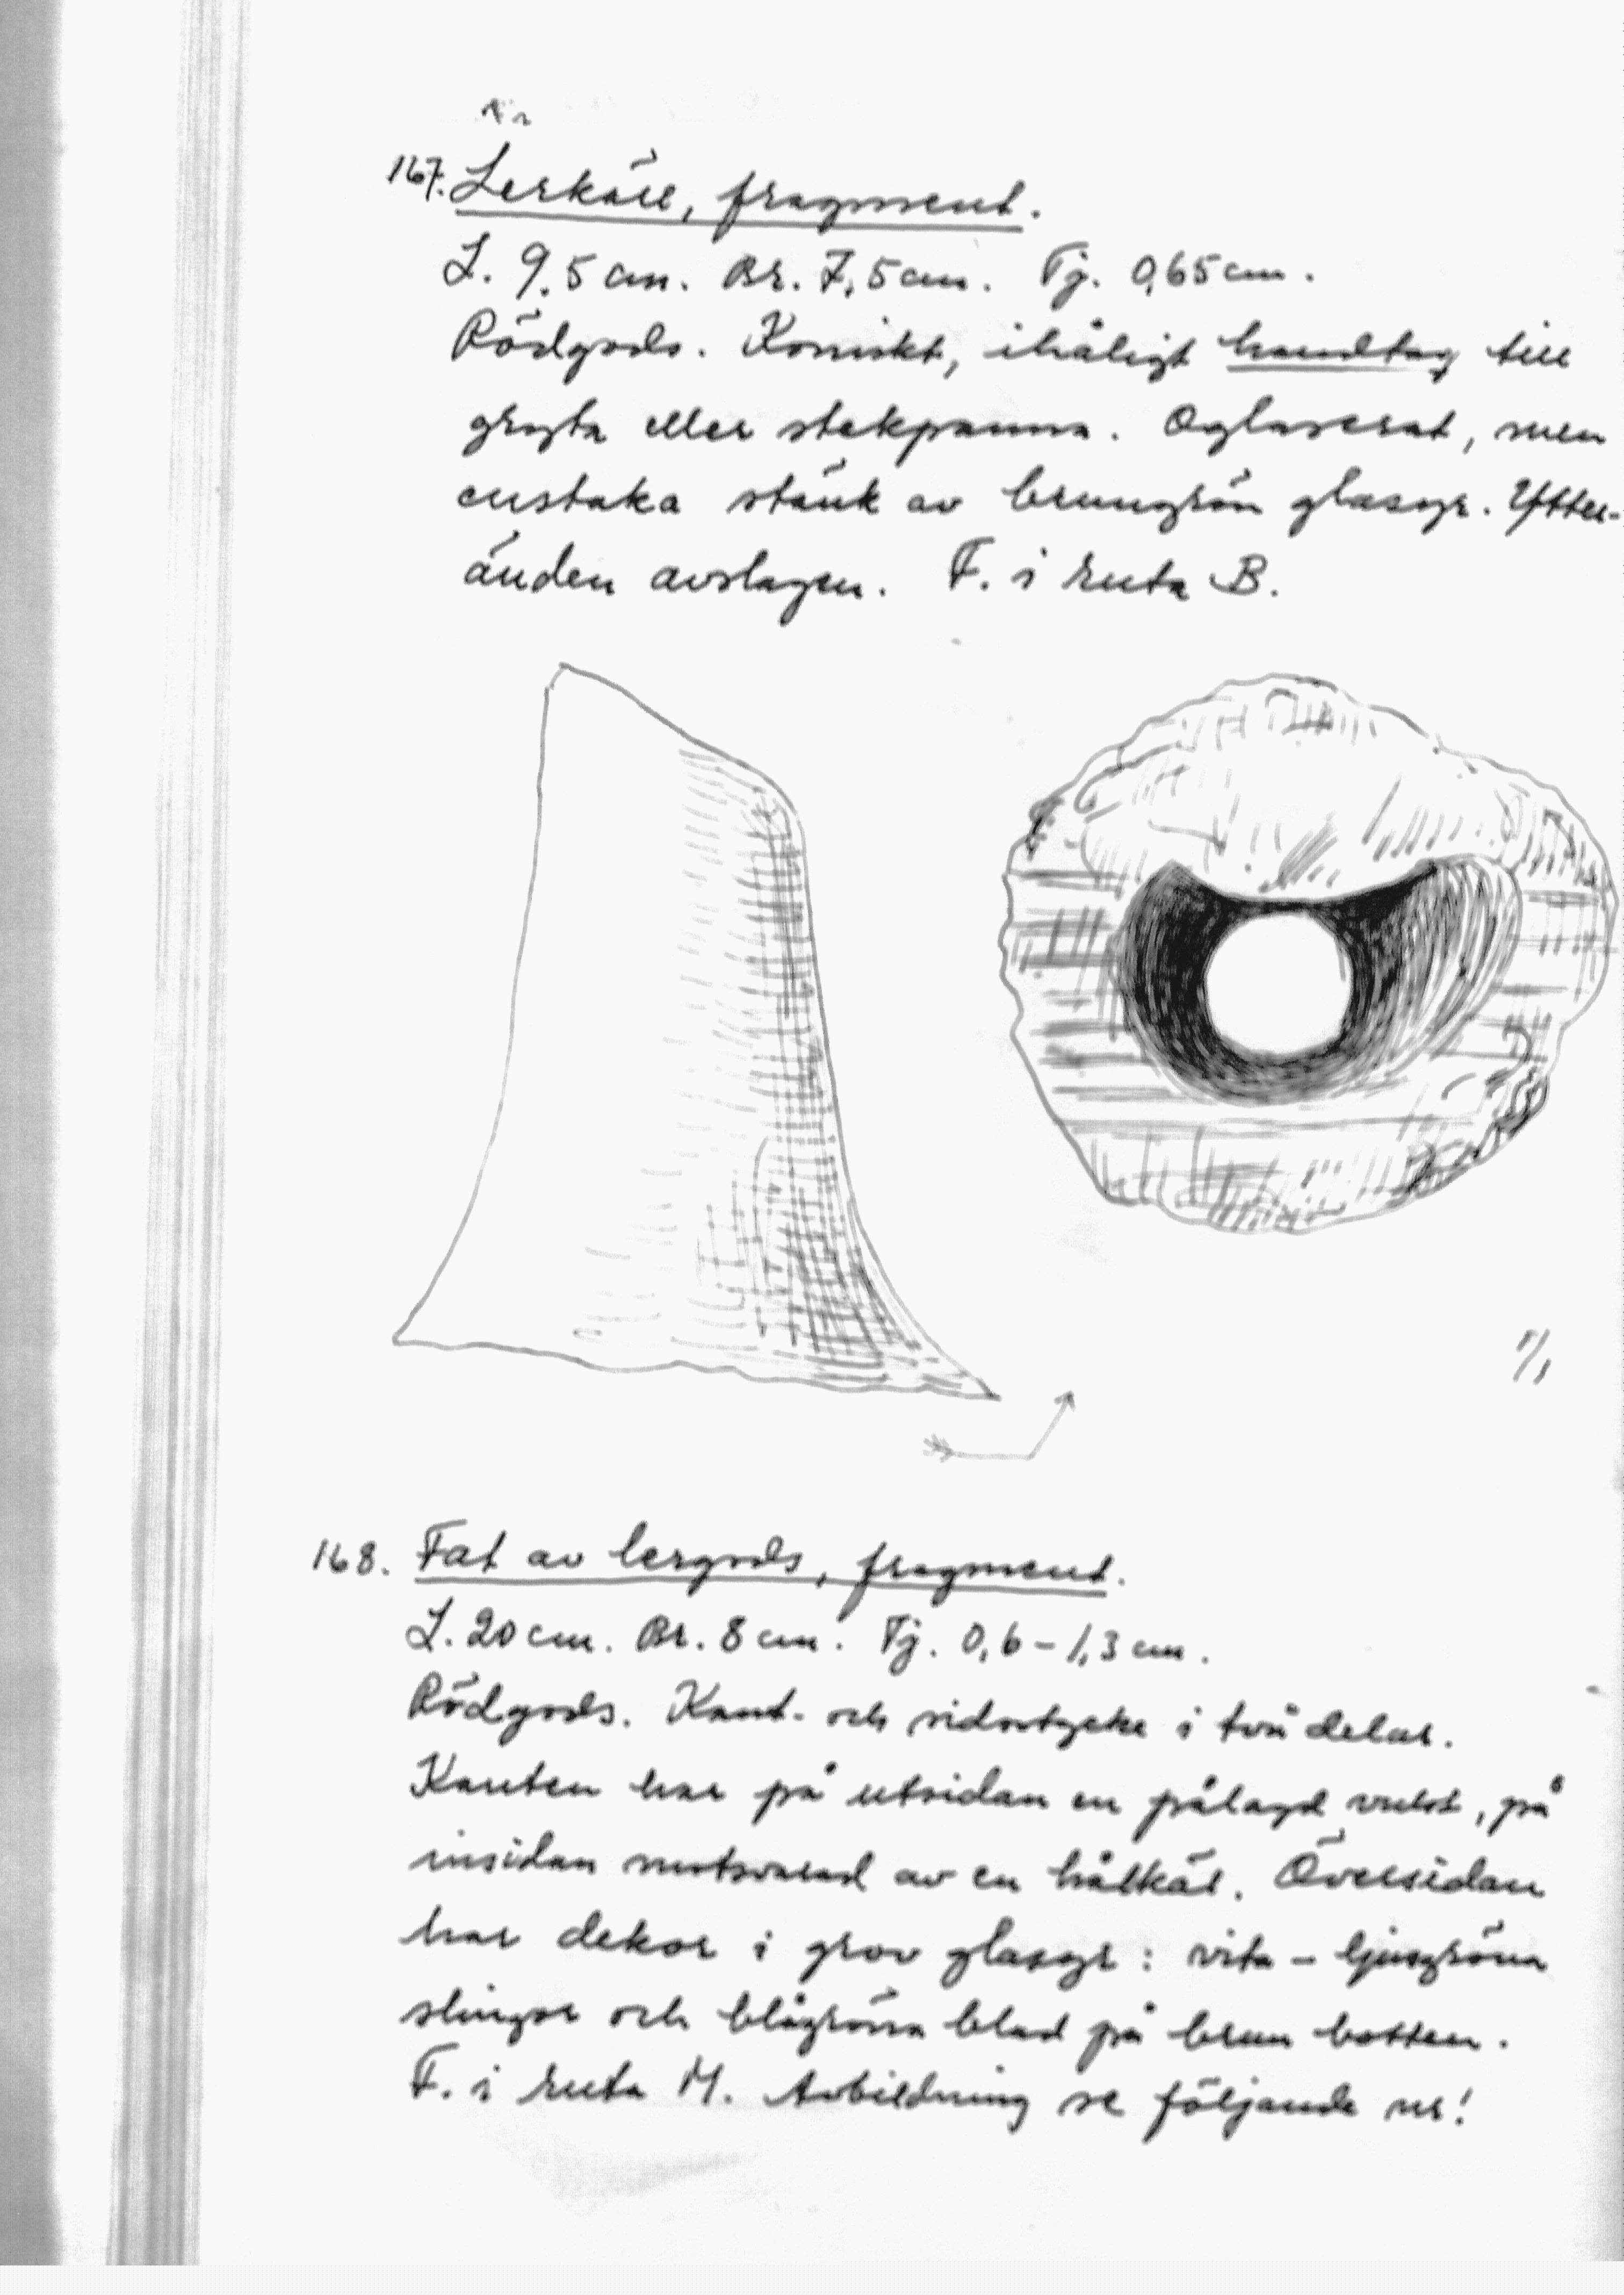 167. Lerkärl, fragment.
L. 9,5 cm. Br. 7,5 cm. Tj. 0,65 cm.
Rödgods. Koniskt, ihåligt handtag till
gryta eller stekpanna. Oglaserat, men
enstaka stänk av brungrön glasyr. Ytter-
änden avslagen. F. i ruta B.
1/1
168. Fat av lergods, fragment.
L. 20 cm. Br. 8 cm. Tj. 0,6 – 1,3 cm.
Rödgods. Kant- och sidostycke i två delar.
Kanten har på utsidan en pålagd vulst, på
insidan motsvarad av en hålkäl. Översidan
har dekor i grov glasyr: vita – ljusgröna
slingor och blågröna blad på brun botten.
F. i ruta M. Avbildning se följande nr!